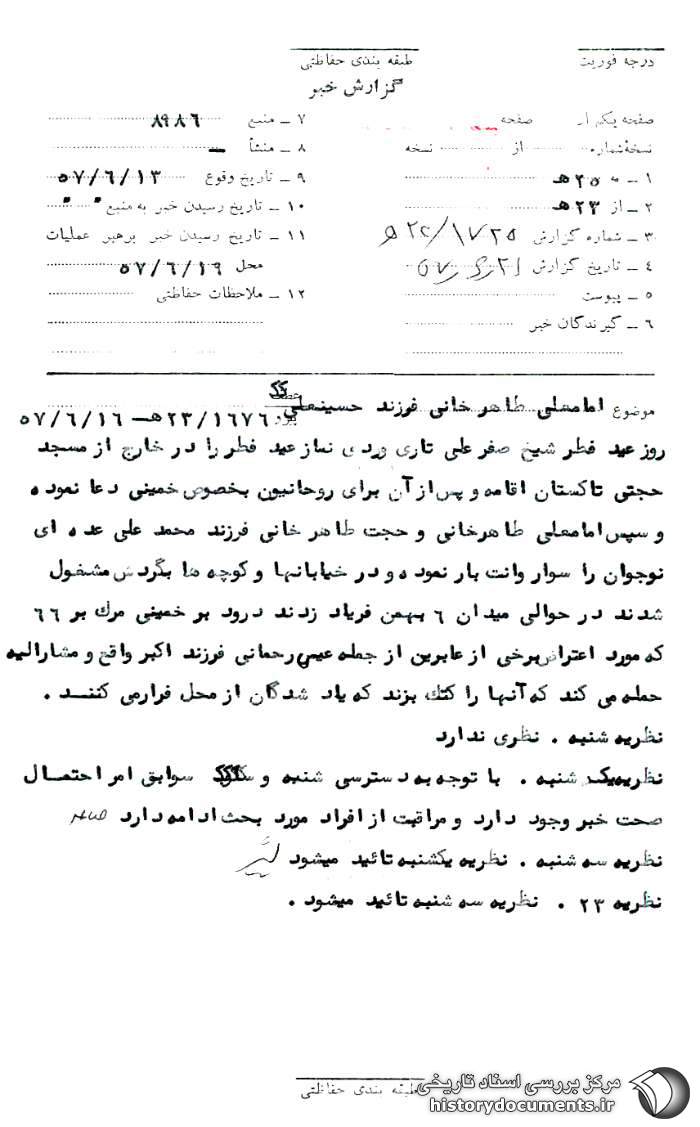 درجه فوریت
طبقه بندی حفاظتی
گزارش خبر
صفحه یکم از صفحه
نسخهٔ شماره از نسخه
۱ ـ به ۲۵ هـ
۲ ـ از ۲۳ هـ
۳ ـ شماره گزارش
۴ ـ تاریخ گزارش
۵ ـ پیوست
۶ ـ گیرندگان خبر
۷ ـ منبع ۸۹۸۶
۸ ـ منشأ ـ
۹ ـ تاریخ وقوع ۵۷/۶/۱۳
۱۰ ـ تاریخ رسیدن خبر به منبع " "
۱۱ ـ تاریخ رسیدن خبر برهبر عملیات
محل ۵۷/۶/۱۹
۱۲ ـ ملاحظات حفاظتی
موضوع امامعلی طاهرخانی فرزند حسینعلی
عطف
پیرو ۲۳/۱۶۷۶هـ ـ ۵۷/۶/۱۶
روز عید فطر شیخ صفر علی تاری وردی نماز عید فطر را در خارج از مسجد
حجتی تاکستان اقامه و پس از آن برای روحانیون بخصوص خمینی دعا نموده
و سپس امامعلی طاهرخانی و حجت طاهر خانی فرزند محمد علی عده ای
نوجوان را سوار وانت بار نموده و در خیابانها و کوچه ها بگردش مشغول
شدند در حوالی میدان ۶ بهمن فریاد زدند درود بر خمینی مرگ بر ۶۶
که مورد اعتراض برخی از عابرین از جمله عیسی رحمانی فرزند اکبر واقع و مشارالیه
حمله می کند که آنها را کتک بزند که یاد شدگان از محل فرار می کنند .
نظریه شنبه . نظری ندارد
نظریه یکشنبه . با توجه به دسترسی شنبه و سوابق امر احتصال
صحت خبر وجود دارد و مراقبت از افراد مورد بحث ادامه دارد
نظریه سه شنبه . نظریه یکشنبه تائید میشود
نظریه ۲۳ . نظریه سه شنبه تائید میشود .
طبقه بندی حفاظتی
مرکز بررسی اسناد تاریخی
historydocuments.ir